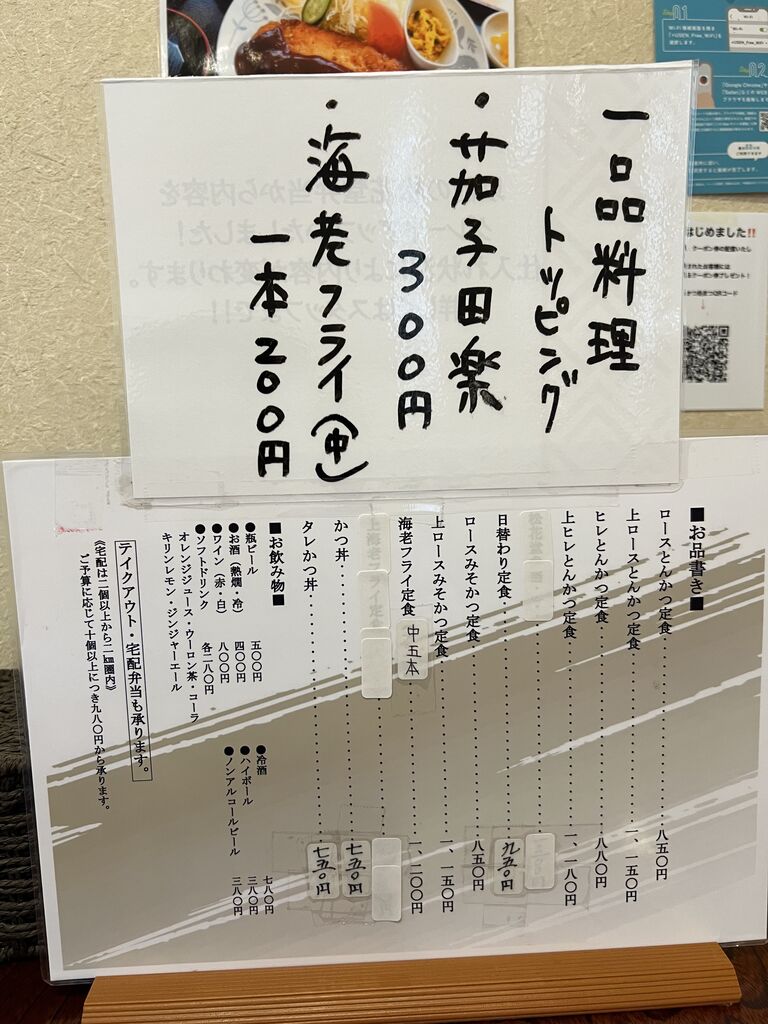 一品料理
トッピング
・茄子田楽
300円
・海老フライ(中)
一本200円
■お品書き■
ロースとんかつ定食 八五〇円
上ロースとんかつ定食 一、一五〇円
ヒレとんかつ定食 八八〇円
上ヒレとんかつ定食 一、一八〇円
日替わり定食 九五〇円
ロースみそかつ定食 八五〇円
上ロースみそかつ定食 一、一五〇円
海老フライ定食 中五本 一、二〇〇円
上海老フライ定食
かつ丼 七五〇円
タレかつ丼 七五〇円
■お飲み物■
●瓶ビール 五〇〇円
●お酒(熱燗・冷) 四〇〇円
●ワイン(赤・白) 八〇〇円
●ソフトドリンク 各二八〇円
オレンジジュース・ウーロン茶・コーラ
キリンレモン・ジンジャーエール
●冷酒 七八〇円
●ハイボール 三八〇円
●ノンアルコールビール 三八〇円
テイクアウト・宅配弁当も承ります。
《宅配は二個以上から二㎞圏内》
ご予算に応じて十個以上につき九八〇円から承ります。
はじめました!!